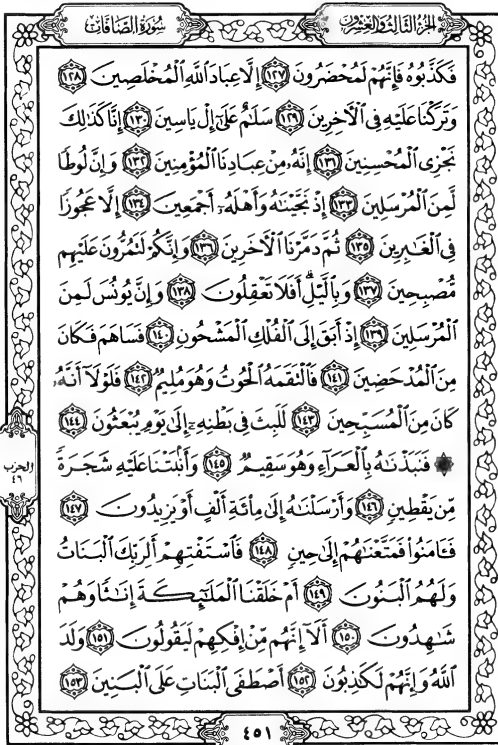 سُورَةُ الصَّافَّات
الجُزءُ الثَّالِثُ وَالعِشْرُونَ
فَكَذَّبُوهُ فَإِنَّهُمْ لَمُحْضَرُونَ ١٢٧ إِلَّا عِبَادَ ٱللَّهِ ٱلْمُخْلَصِينَ ١٢٨
وَتَرَكْنَا عَلَيْهِ فِى ٱلْأَخِرِينَ ١٢٩ سَلَٰمٌ عَلَىٰٓ إِلْ يَاسِينَ ١٣٠ إِنَّا كَذَٰلِكَ
نَجْزِى ٱلْمُحْسِنِينَ ١٣١ إِنَّهُۥ مِنْ عِبَادِنَا ٱلْمُؤْمِنِينَ ١٣٢ وَإِنَّ لُوطًا
لَّمِنَ ٱلْمُرْسَلِينَ ١٣٣ إِذْ نَجَّيْنَٰهُ وَأَهْلَهُۥٓ أَجْمَعِينَ ١٣٤ إِلَّا عَجُوزًا
فِى ٱلْغَٰبِرِينَ ١٣٥ ثُمَّ دَمَّرْنَا ٱلْأَخَرِينَ ١٣٦ وَإِنَّكُمْ لَتَمُرُّونَ عَلَيْهِم
مُّصْبِحِينَ ١٣٧ وَبِٱلَّيْلِ ۗ أَفَلَا تَعْقِلُونَ ١٣٨ وَإِنَّ يُونُسَ لَمِنَ
ٱلْمُرْسَلِينَ ١٣٩ إِذْ أَبَقَ إِلَى ٱلْفُلْكِ ٱلْمَشْحُونِ ١٤٠ فَسَاهَمَ فَكَانَ
مِنَ ٱلْمُدْحَضِينَ ١٤١ فَٱلْتَقَمَهُ ٱلْحُوتُ وَهُوَ مُلِيمٌ ١٤٢ فَلَوْلَآ أَنَّهُۥ
كَانَ مِنَ ٱلْمُسَبِّحِينَ ١٤٣ لَلَبِثَ فِى بَطْنِهِۦٓ إِلَىٰ يَوْمِ يُبْعَثُونَ ١٤٤
الحزب
٤٦
۞ فَنَبَذْنَٰهُ بِٱلْعَرَآءِ وَهُوَ سَقِيمٌ ١٤٥ وَأَنۢبَتْنَا عَلَيْهِ شَجَرَةً
مِّن يَقْطِينٍ ١٤٦ وَأَرْسَلْنَٰهُ إِلَىٰ مِا۟ئَةِ أَلْفٍ أَوْ يَزِيدُونَ ١٤٧
فَـَٔامَنُوا۟ فَمَتَّعْنَٰهُمْ إِلَىٰ حِينٍ ١٤٨ فَٱسْتَفْتِهِمْ أَلِرَبِّكَ ٱلْبَنَاتُ
وَلَهُمُ ٱلْبَنُونَ ١٤٩ أَمْ خَلَقْنَا ٱلْمَلَٰٓئِكَةَ إِنَٰثًا وَهُمْ
شَٰهِدُونَ ١٥٠ أَلَآ إِنَّهُم مِّنْ إِفْكِهِمْ لَيَقُولُونَ ١٥١ وَلَدَ
ٱللَّهُ وَإِنَّهُمْ لَكَٰذِبُونَ ١٥٢ أَصْطَفَى ٱلْبَنَاتِ عَلَى ٱلْبَنِينَ ١٥٣
٤٥١